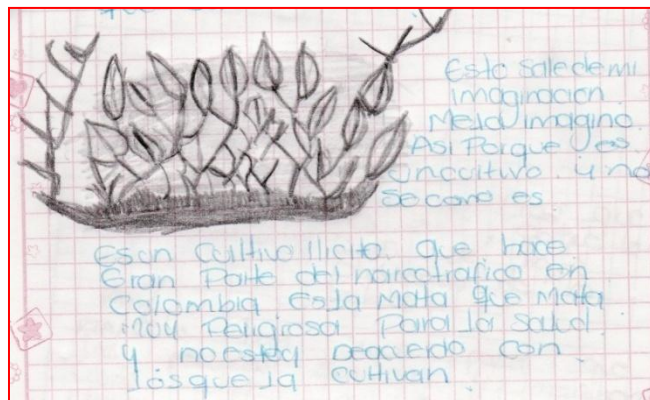 Esto sale de mi
imaginacion
Me la imagino
Asi Porque es
un cultivo y no
se como es
Es un cultivo ilicito que hace
Gran Parte del narcotrafico en
Colombia Esta Mata que Mata
Muy Peligrosa Para la salud
y no estoy deacuerdo con
los que la cultivan